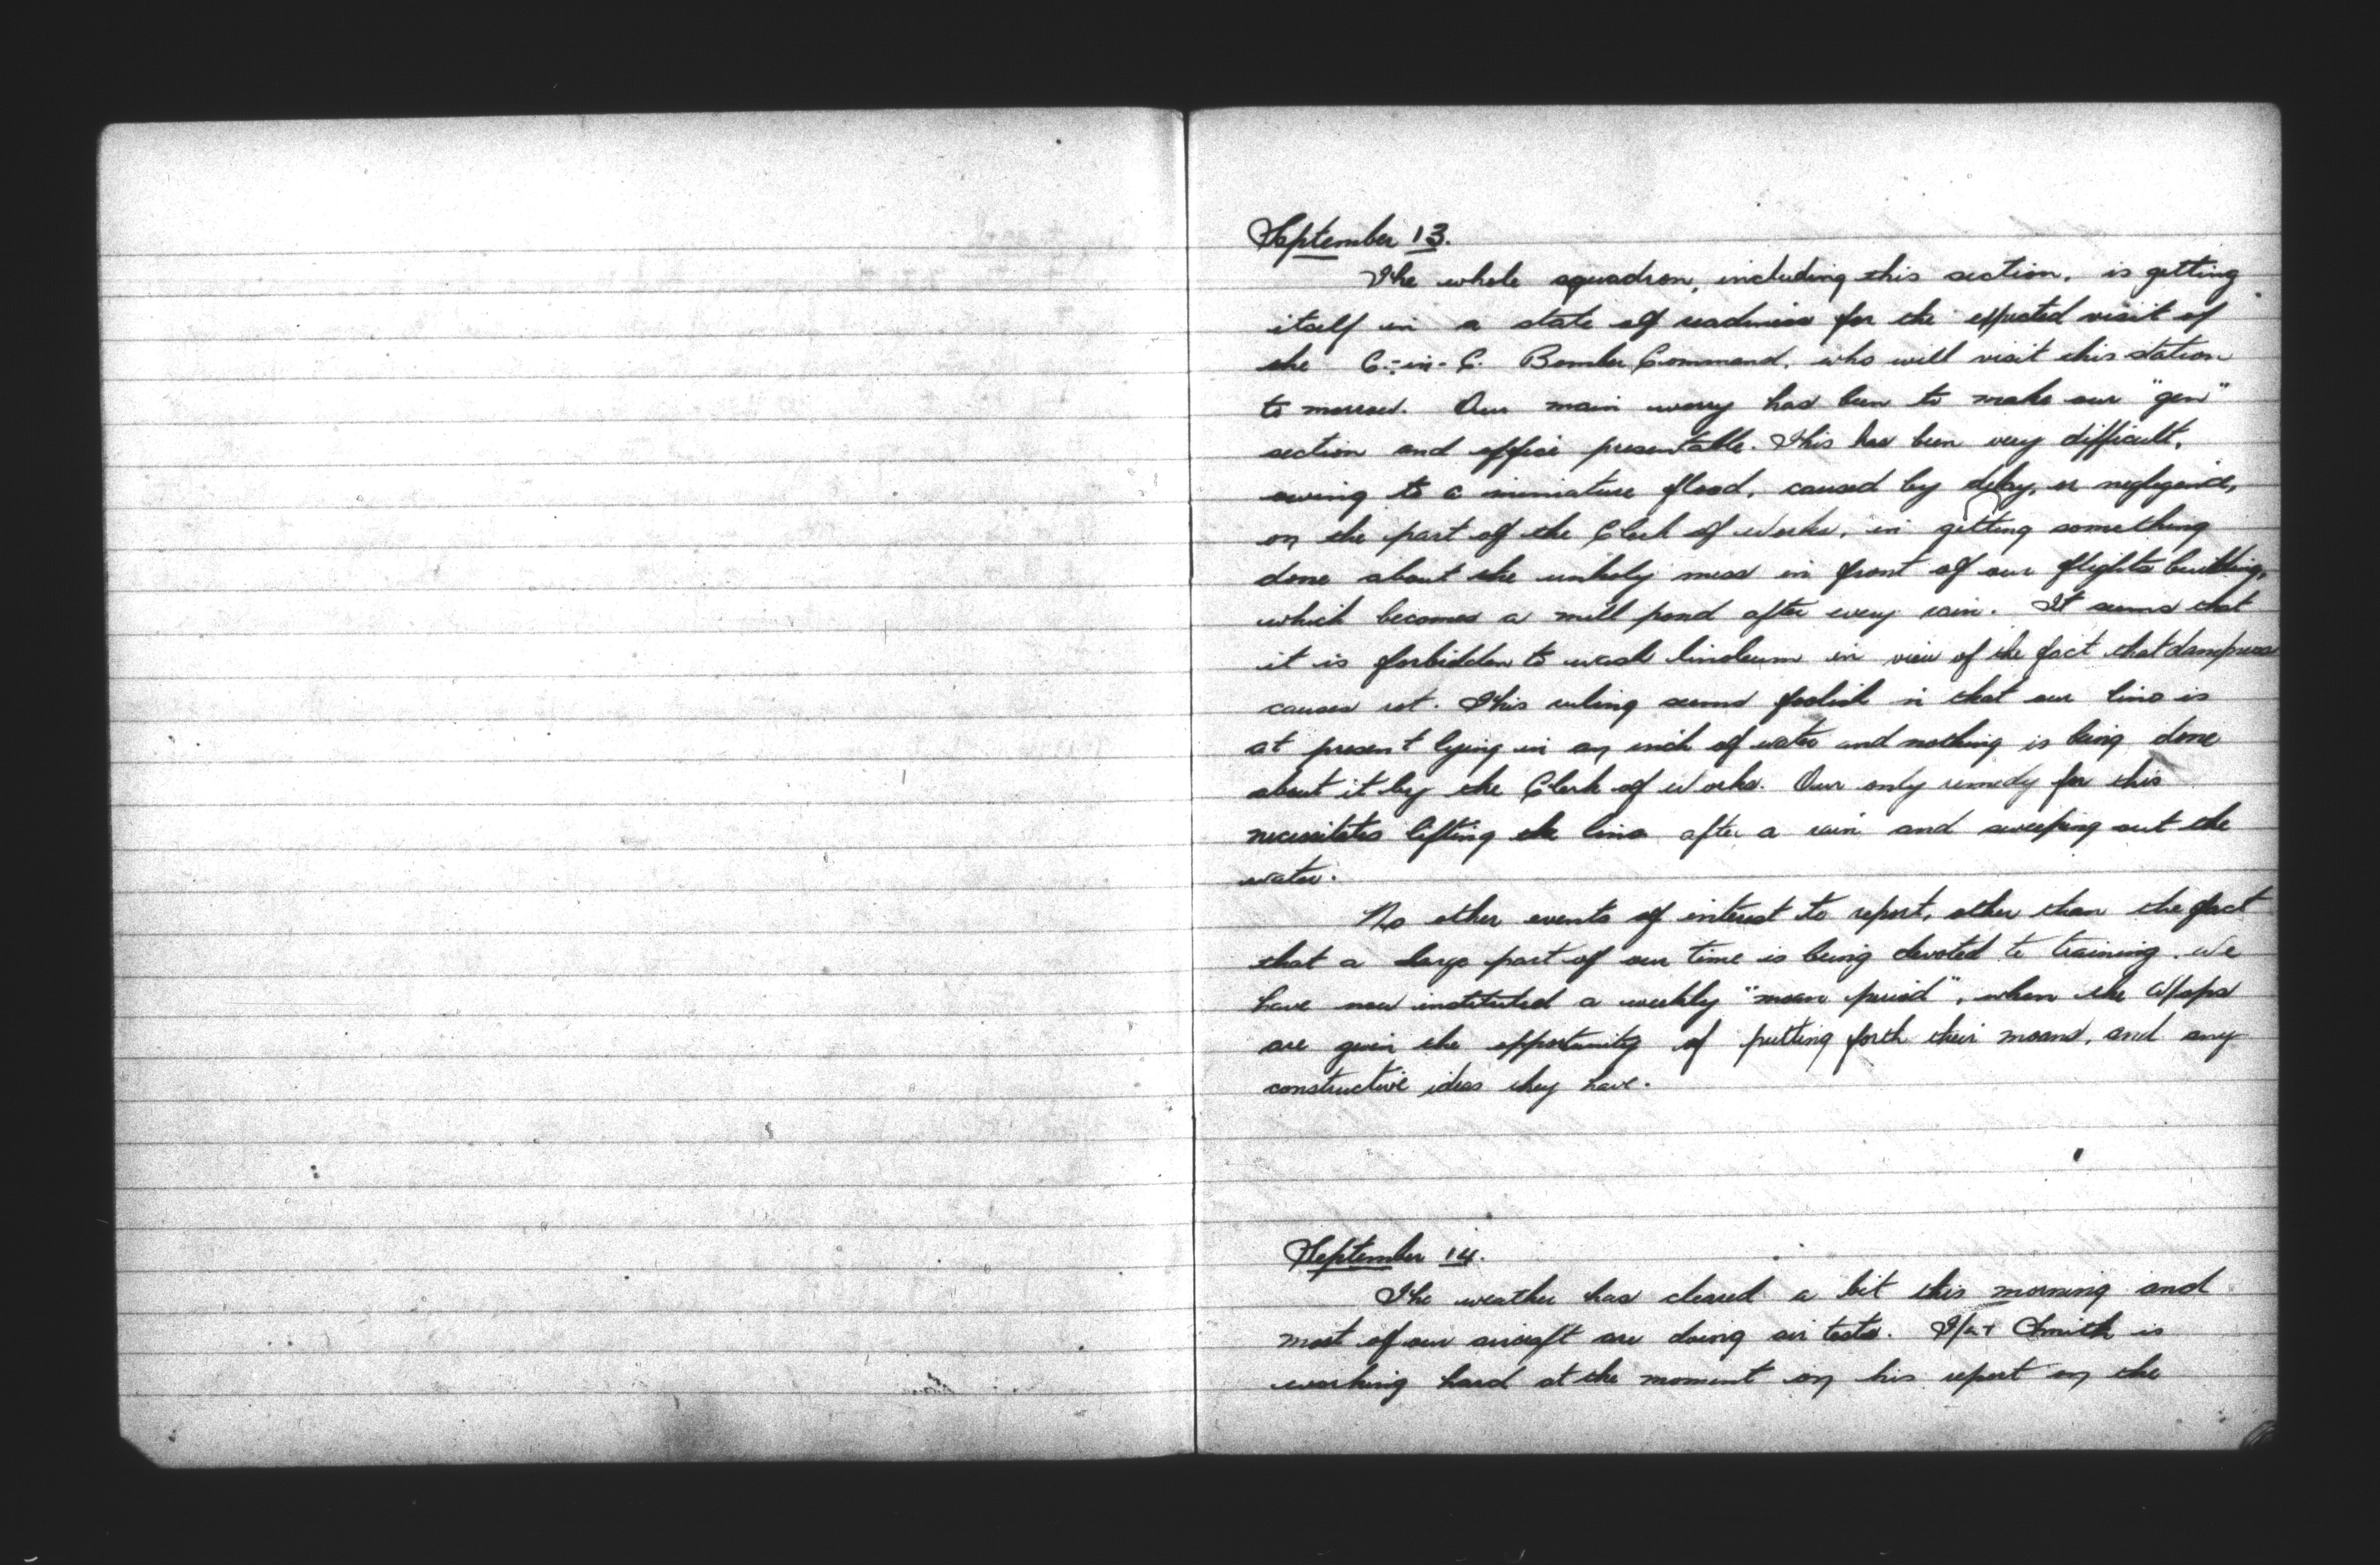 September 13.
The whole squadron, including this section, is getting
itself in a state of readiness for the expected visit of
the C.-in-C. Bomber Command, who will visit this station
to morrow. Our main worry has been to make our "gen"
section and office presentable. This has been very difficult,
owing to a miniature flood, caused by delay, or negligence,
on the part of the Clerk of Works, in getting something
done about the unholy mess in front of our flights building,
which becomes a mill pond after every rain. It seems that
it is forbidden to wash linoleum in view of the fact that dampness
causes rot. This ruling seems foolish in that our lino is
at present lying in an inch of water and nothing is being done
about it by the Clerk of Works. Our only remedy for this
necessitates lifting the lino after a rain and sweeping out the
water.
No other events of interest to report, other than the fact
that a large part of our time is being devoted to training. We
have now instituted a weekly "moan period", when the W/ops
are given the opportunity of putting forth their moans, and any
constructive ideas they have.
September 14.
The weather has cleared a bit this morning and
most of our aircraft are doing air tests. Smith is
working hard at the moment on his report on the